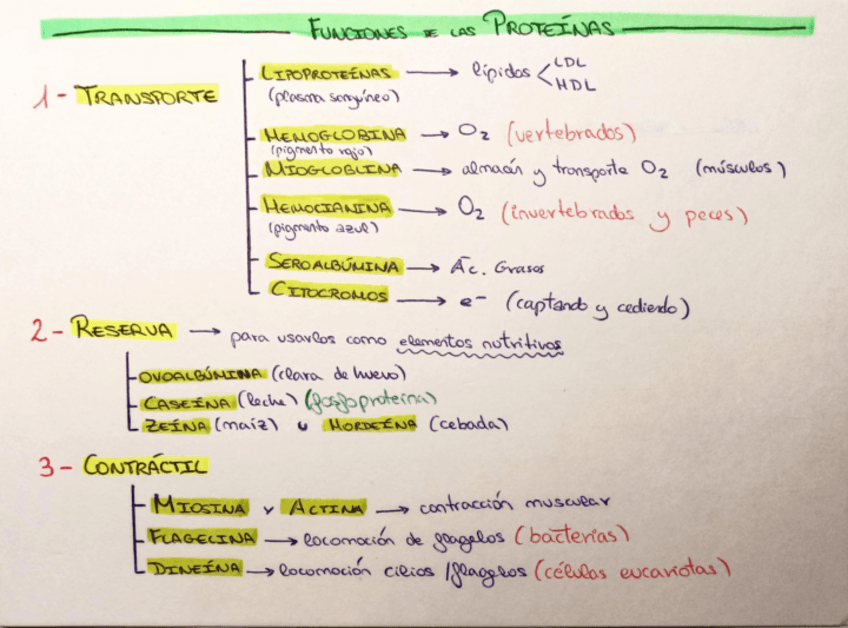 FUNCIONES DE LAS PROTEÍNAS
1- TRANSPORTE
LIPOPROTEÍNAS → lípidos < LDL
HDL
(plasma sanguíneo)
HEMOGLOBINA → O2 (vertebrados)
(pigmento rojo)
MIOGLOBLINA → almacén y transporte O2 (músculos)
HEMOCIANINA → O2 (invertebrados y peces)
(pigmento azul)
SEROALBÚMINA → Ác. Grasos
CITOCROMOS → e- (captando y cediendo)
2- RESERVA → para usarlos como elementos nutritivos
OVOALBÚMINA (clara de huevo)
CASEÍNA (leche) (fosfoproteína)
ZEÍNA (maíz) u HORDEÍNA (cebada)
3- CONTRÁCTIL
MIOSINA Y ACTINA → contracción muscular
FLAGELINA → locomoción de flagelos (bacterias)
DINEÍNA → locomoción cilios /flagelos (células eucariotas)